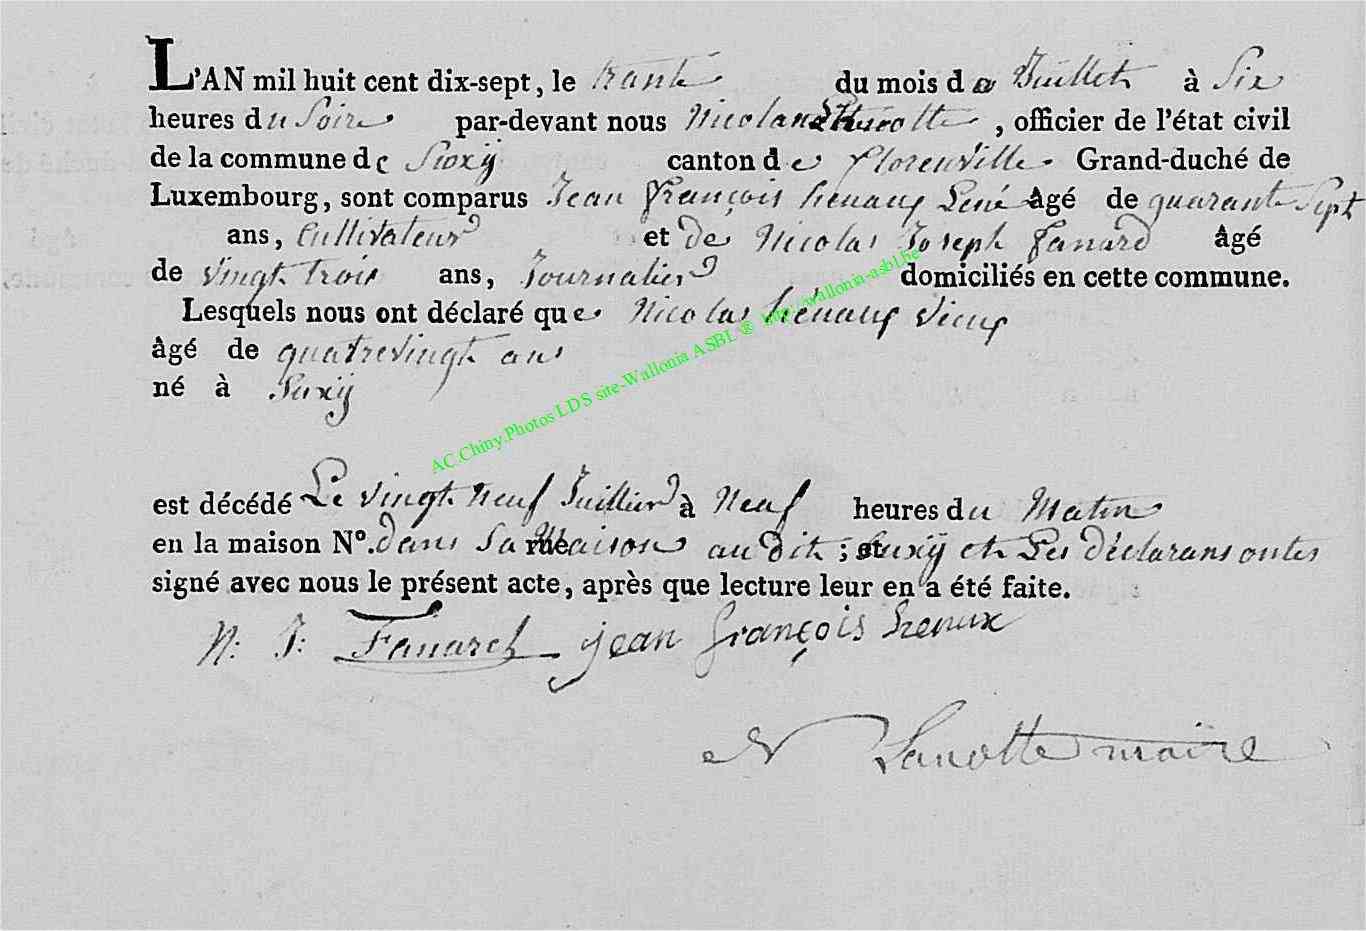 L'AN mil huit cent dix-sept, le trante du mois de Juillet à Six
heures du Soire par-devant nous Nicolas , officier de l'état civil
de la commune de Suxÿ canton de florenville Grand-duché de
Luxembourg, sont comparus Jean françois henaux Lené âgé de quarante Sept
ans, Cultivateur et de Nicolas Joseph fanard âgé
de vingt trois ans, Journalier domiciliés en cette commune.
Lesquels nous ont déclaré que Nicolas henaux vieux
âgé de quatrevingt ans
né à Suxÿ
AC.Chiny.Photos LDS site-Wallonia ASBL ® www.wallonia-asbl.be
est décédé Le vingt neuf Juillier à Neuf heures du Matin
en la maison N°. dans Sa rue Maison au dit ; et Suxÿ et Les déclarans ontes
signé avec nous le présent acte, après que lecture leur en a été faite.
N: J: Fanard jean françois henaux
N Lanotte maire